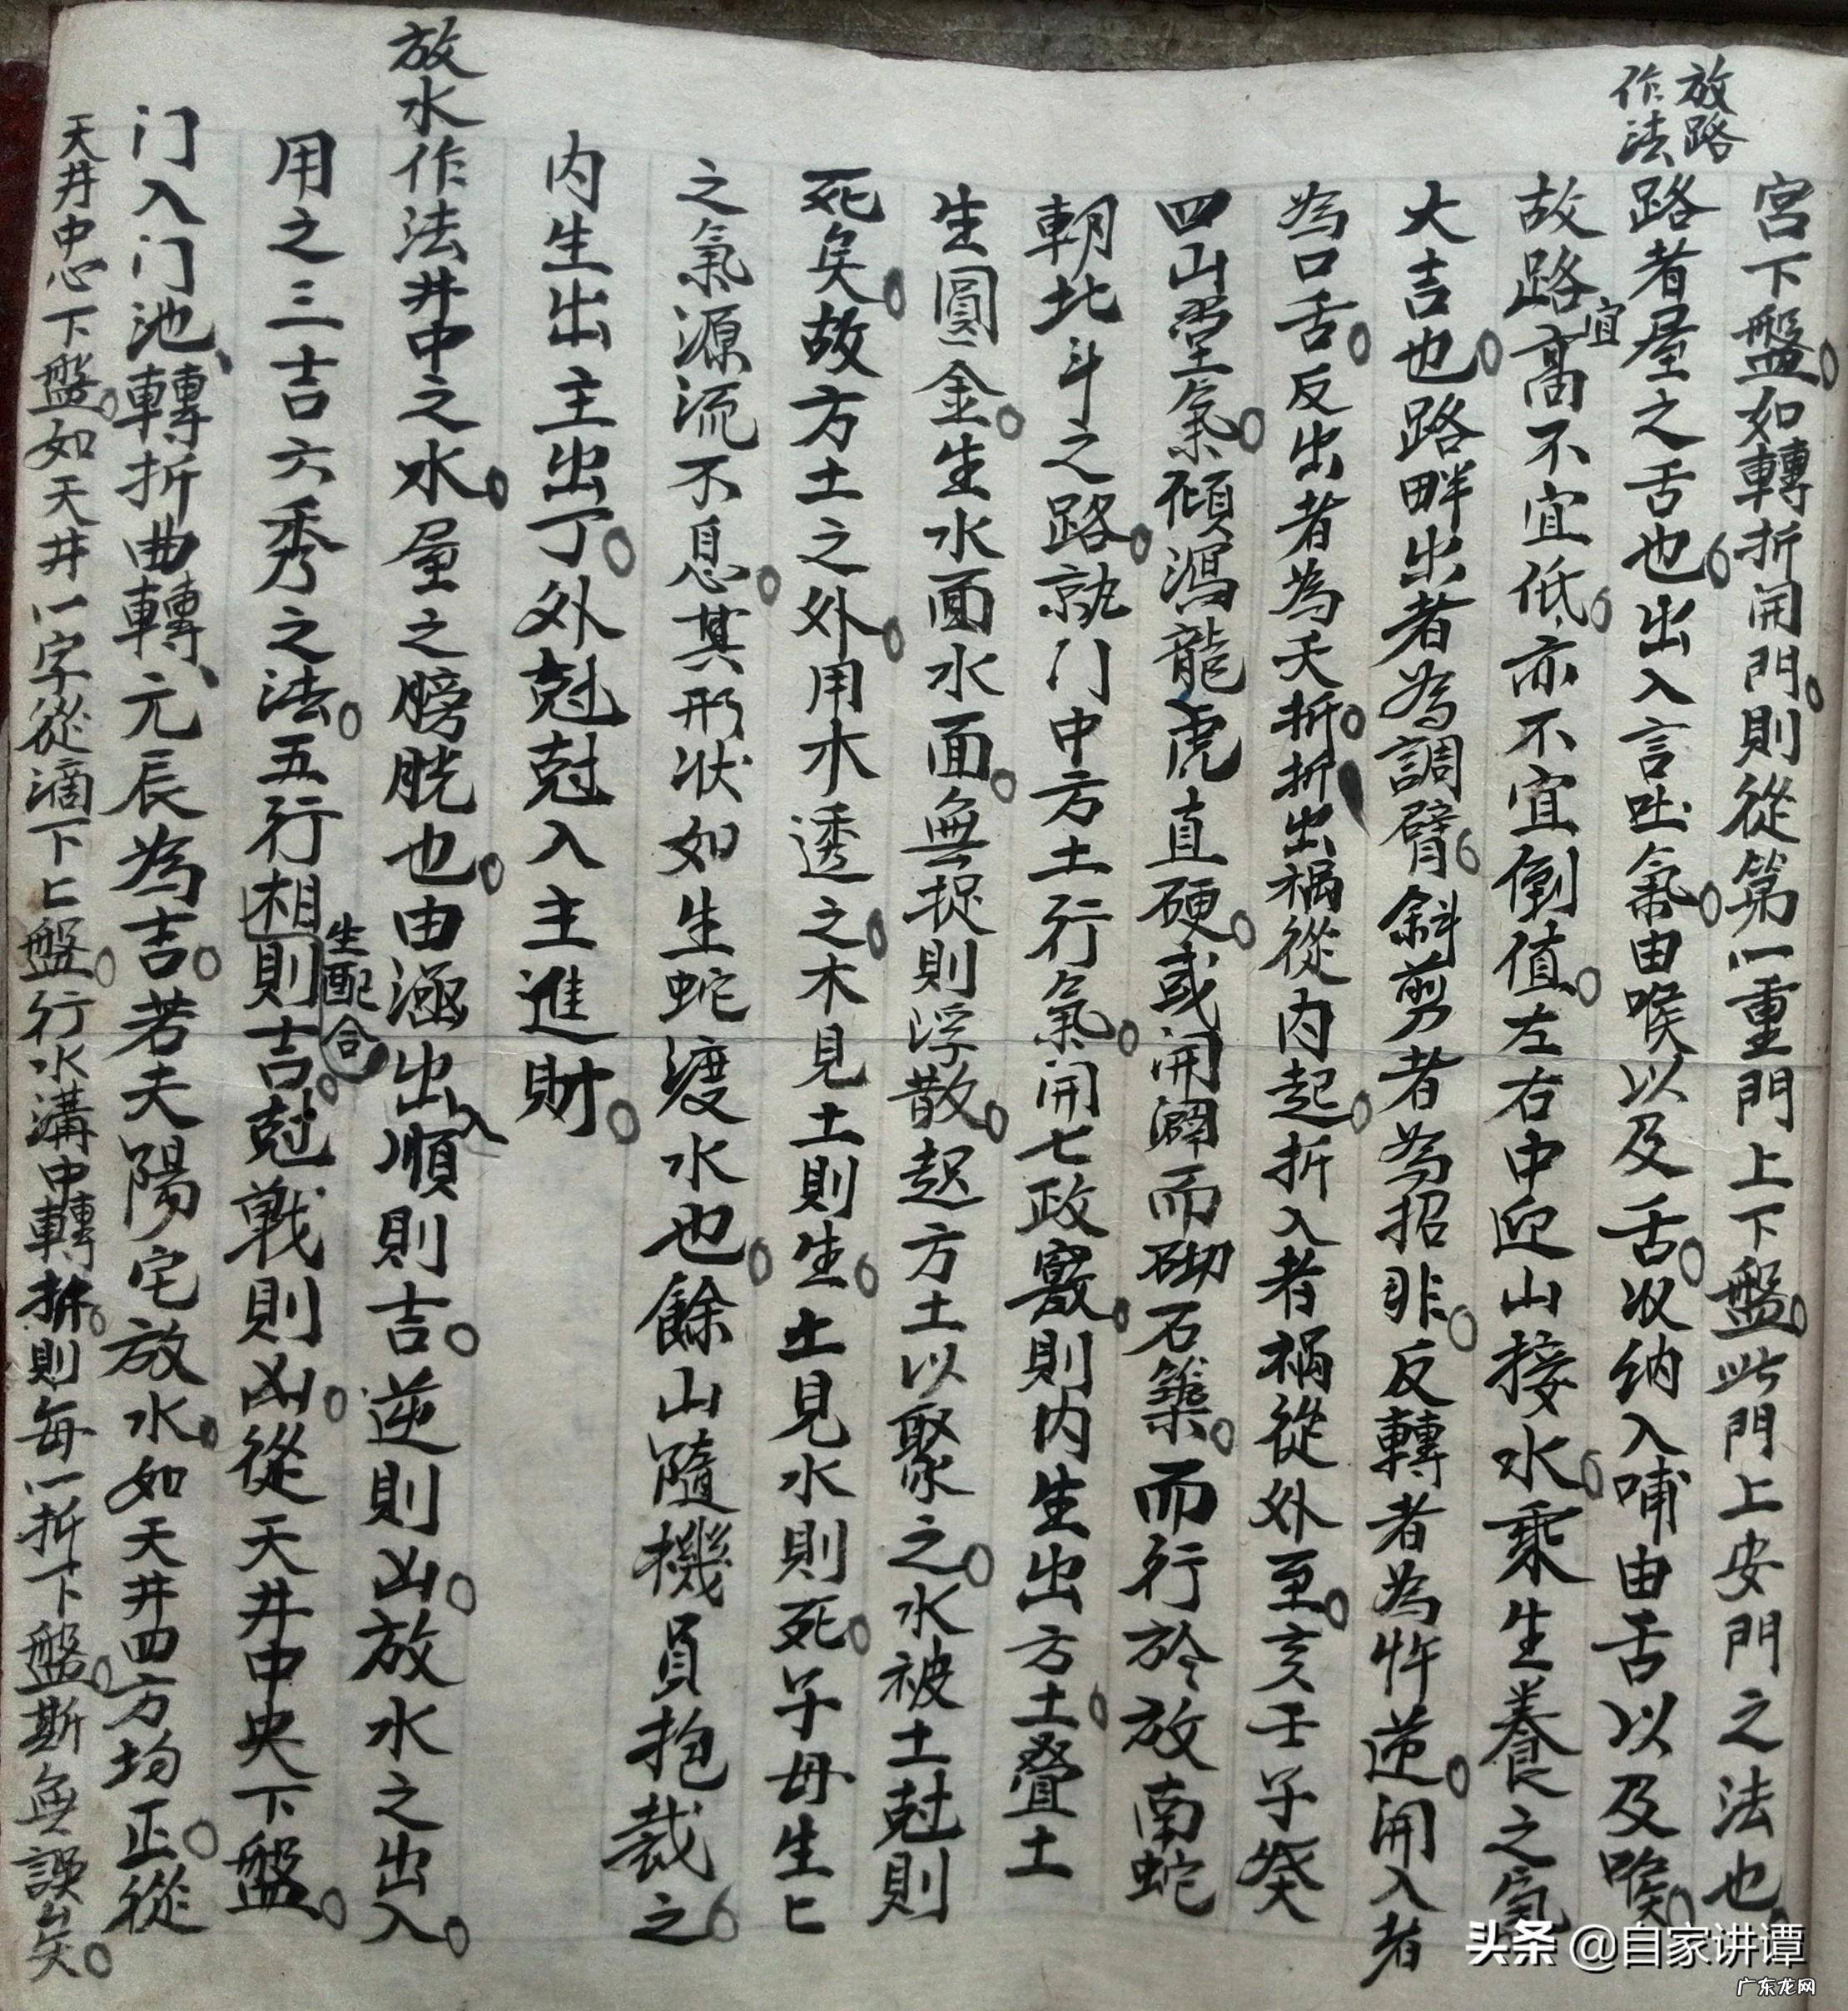 宮下盤如轉折開門則從第一重門上下盤此門上安門之法也
放路
作法
路者屋之舌也出入言吐氣由喉以及舌收纳入哺由舌以及喉
故路宜高不宜低亦不宜倒值左右中迎山接水乘生養之氣
大吉也路畔出者為調臂斜剪者為招非反轉者為忤逆開入者
為口舌反出者為夭折折出禍從内起折入者禍從外至亥壬子癸
四山堂氣傾瀉龍虎直硬或開闢而砌石築而行於放南蛇
朝北斗之路就门中方土行氣開七政竅則内生出方土叠土
生圓金生水面水面無捉則浮散起方土以聚之水被土尅則
死矣故方土之外用木透之木見土則生土見水則死子母生匕
之氣源流不息其形状如生蛇渡水也餘山隨機員抱裁之
内生出主出丁外尅尅入主進財
放水作法井中之水屋之膀胱也由涵出入順則吉逆則凶放水之出入
用之三吉六秀之法五行相生配合則吉尅戰則凶從天井中央下盤
门入门池轉折曲轉元辰為吉若夫陽宅放水如天井四方均正從
天井中心下盤如天井一字從滴下匕盤行水溝中轉折則每一折下盤斯無誤矣
头条 @自家讲谭
广东龙网